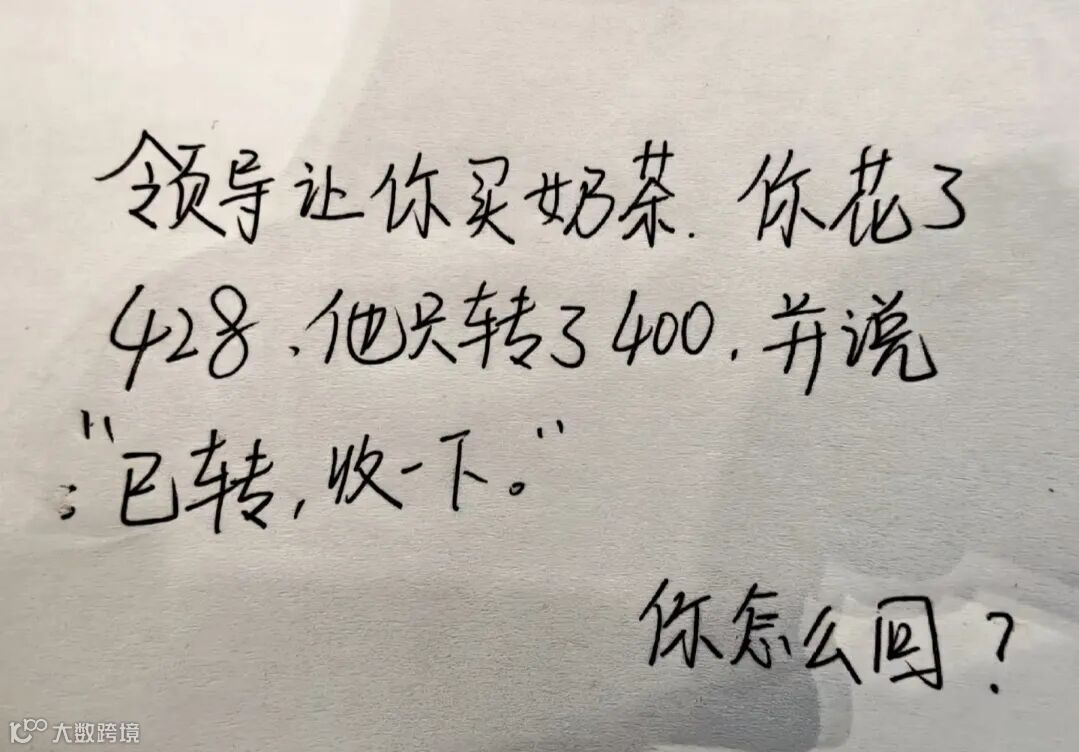 领导让你买奶茶.你花了
428、他只转了400.并说
:"已转,收一下。"
你怎么回?
大数跨境